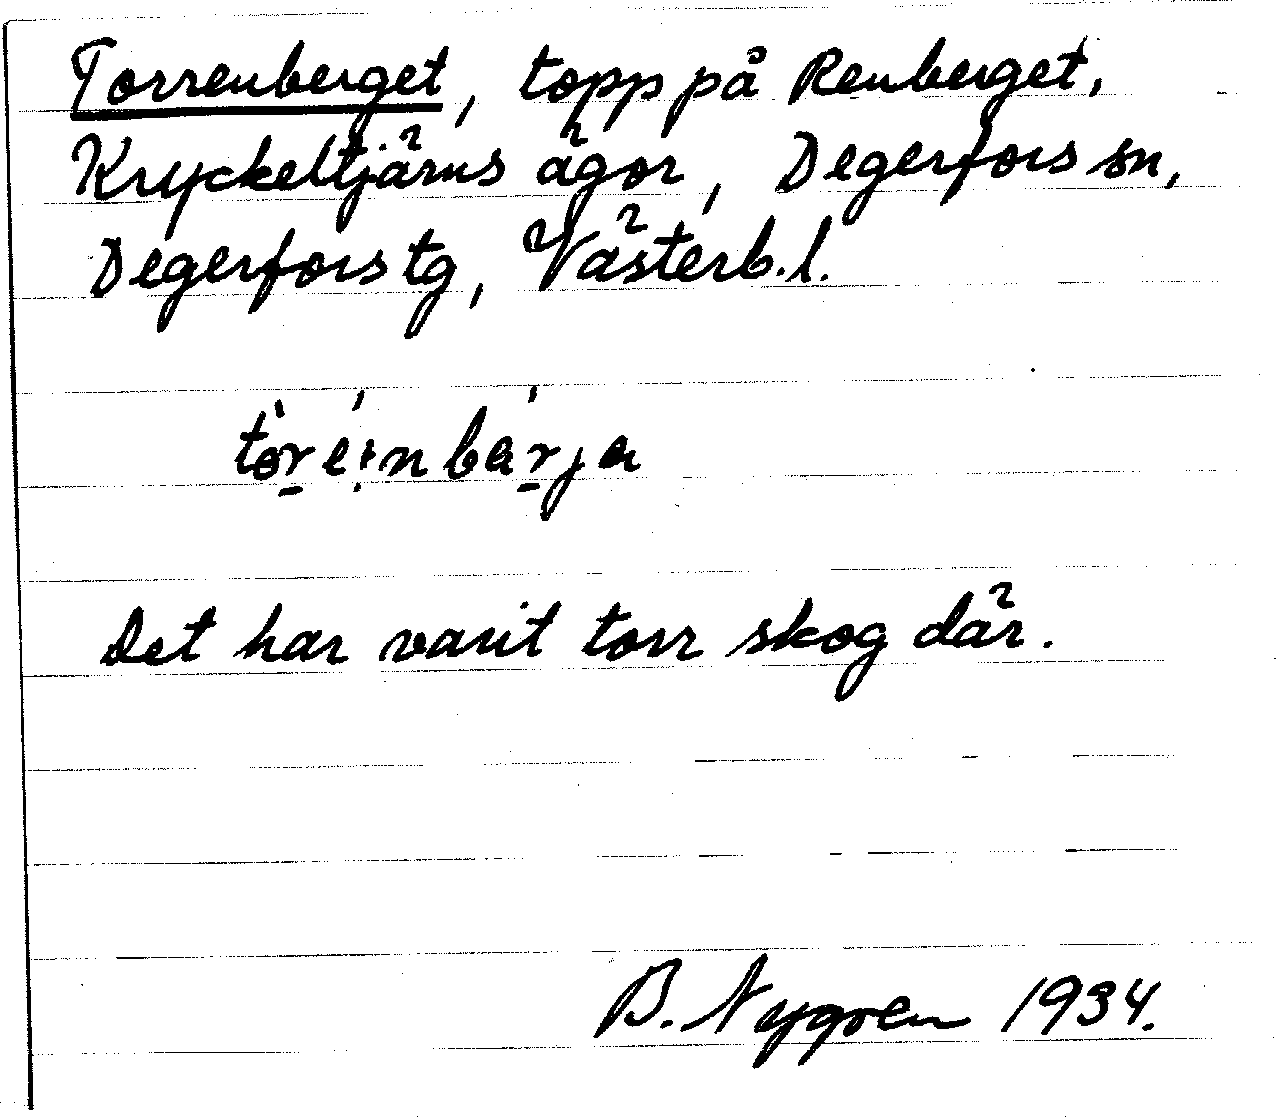 Torrenberget, topp på Renberget,
Kryckeltjärns ägor, Degerfors sn,
Degerfors tg, Västerb.l.
Det har varit torr skog där.
B. Nygren 1934.